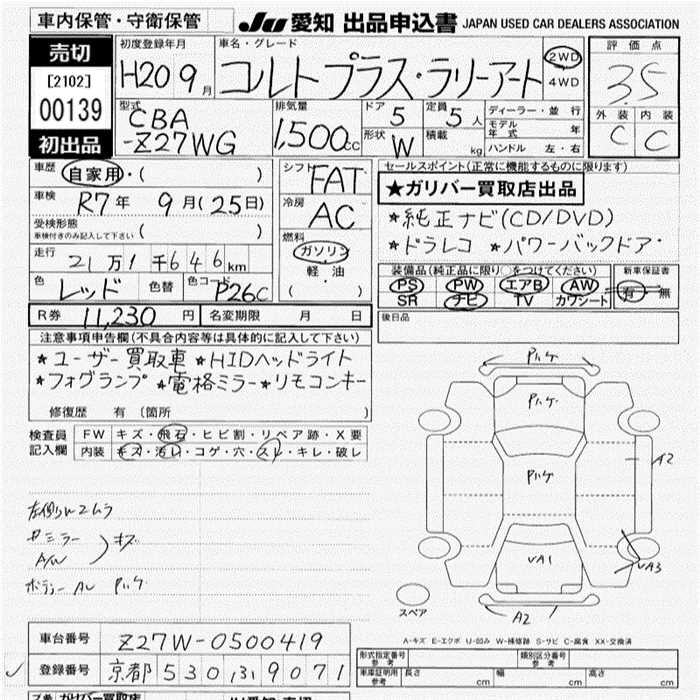 車内保管・守衛保管
JU 愛知 出品申込書 JAPAN USED CAR DEALERS ASSOCIATION
売切
[2102]
00139
初出品
初度登録年月
H20 9月
車名・グレード
コルトプラス・ラリーアート
2WD
4WD
評価点
3.5
外装 内装
C C
型式
CBA
-Z27WG
排気量
1,500cc
ドア 5
形状 W
定員 5人
積載 kg
ディーラー・並行
モデル年式 年
ハンドル 左・右
車歴 自家用・( )
車検 R7年 9月(25日)
受検形態
車検付きのみ記入して下さい ( )
走行 21万1千646km
色 レッド 色替 色コード P26C
シフト FAT
冷房 AC
燃料
ガソリン
軽油
( )
セールスポイント(正常に機能するものに限ります)
★ガリバー買取店出品
★純正ナビ(CD/DVD)
★ドラレコ ★パワーバックドア
装備品(純正品に限り○をつけてください)
PS PW エアB AW
SR ナビ TV カワシート
新車保証書
有・無
R券 11,230円 名変期限 月 日
後日品
注意事項申告欄(不具合内容等は具体的に記入して下さい)
★ユーザー買取車 ★HIDヘッドライト
★フォグランプ ★電格ミラー ★リモコンキー
修復歴 有 (箇所 )
検査員
記入欄
FW キズ・飛石・ヒビ割・リペア跡・X要
内装 キズ・汚レ・コゲ・穴・スレ・キレ・破レ
ミラー
A/W
キズ
ボデー AU Pハケ
Pハケ
Pハケ
Pハケ
A2
UA1
UA3
A2
スペア
A-キズ E-エクボ U-凹み W-補修跡 S-サビ C-腐食 XX-交換済
車台番号 Z27W-0500419
登録番号 京都 530 9071
形式指定番号
参考
類別区分番号
参考
車庫証明用
参考
長さ cm 幅 cm 高さ cm